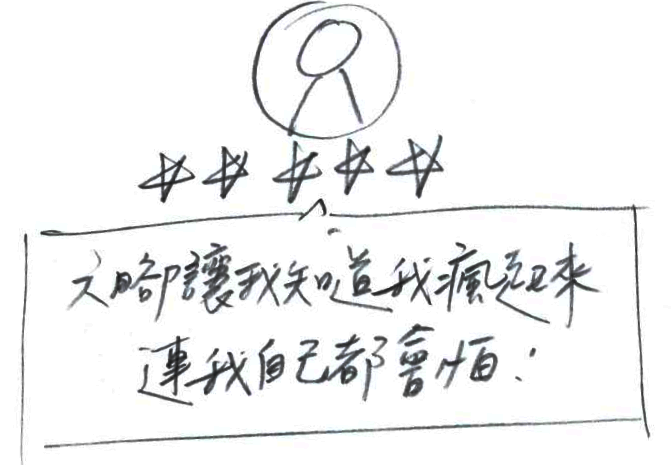 文略卻讓我知道我瘋起來
連我自己都會怕！